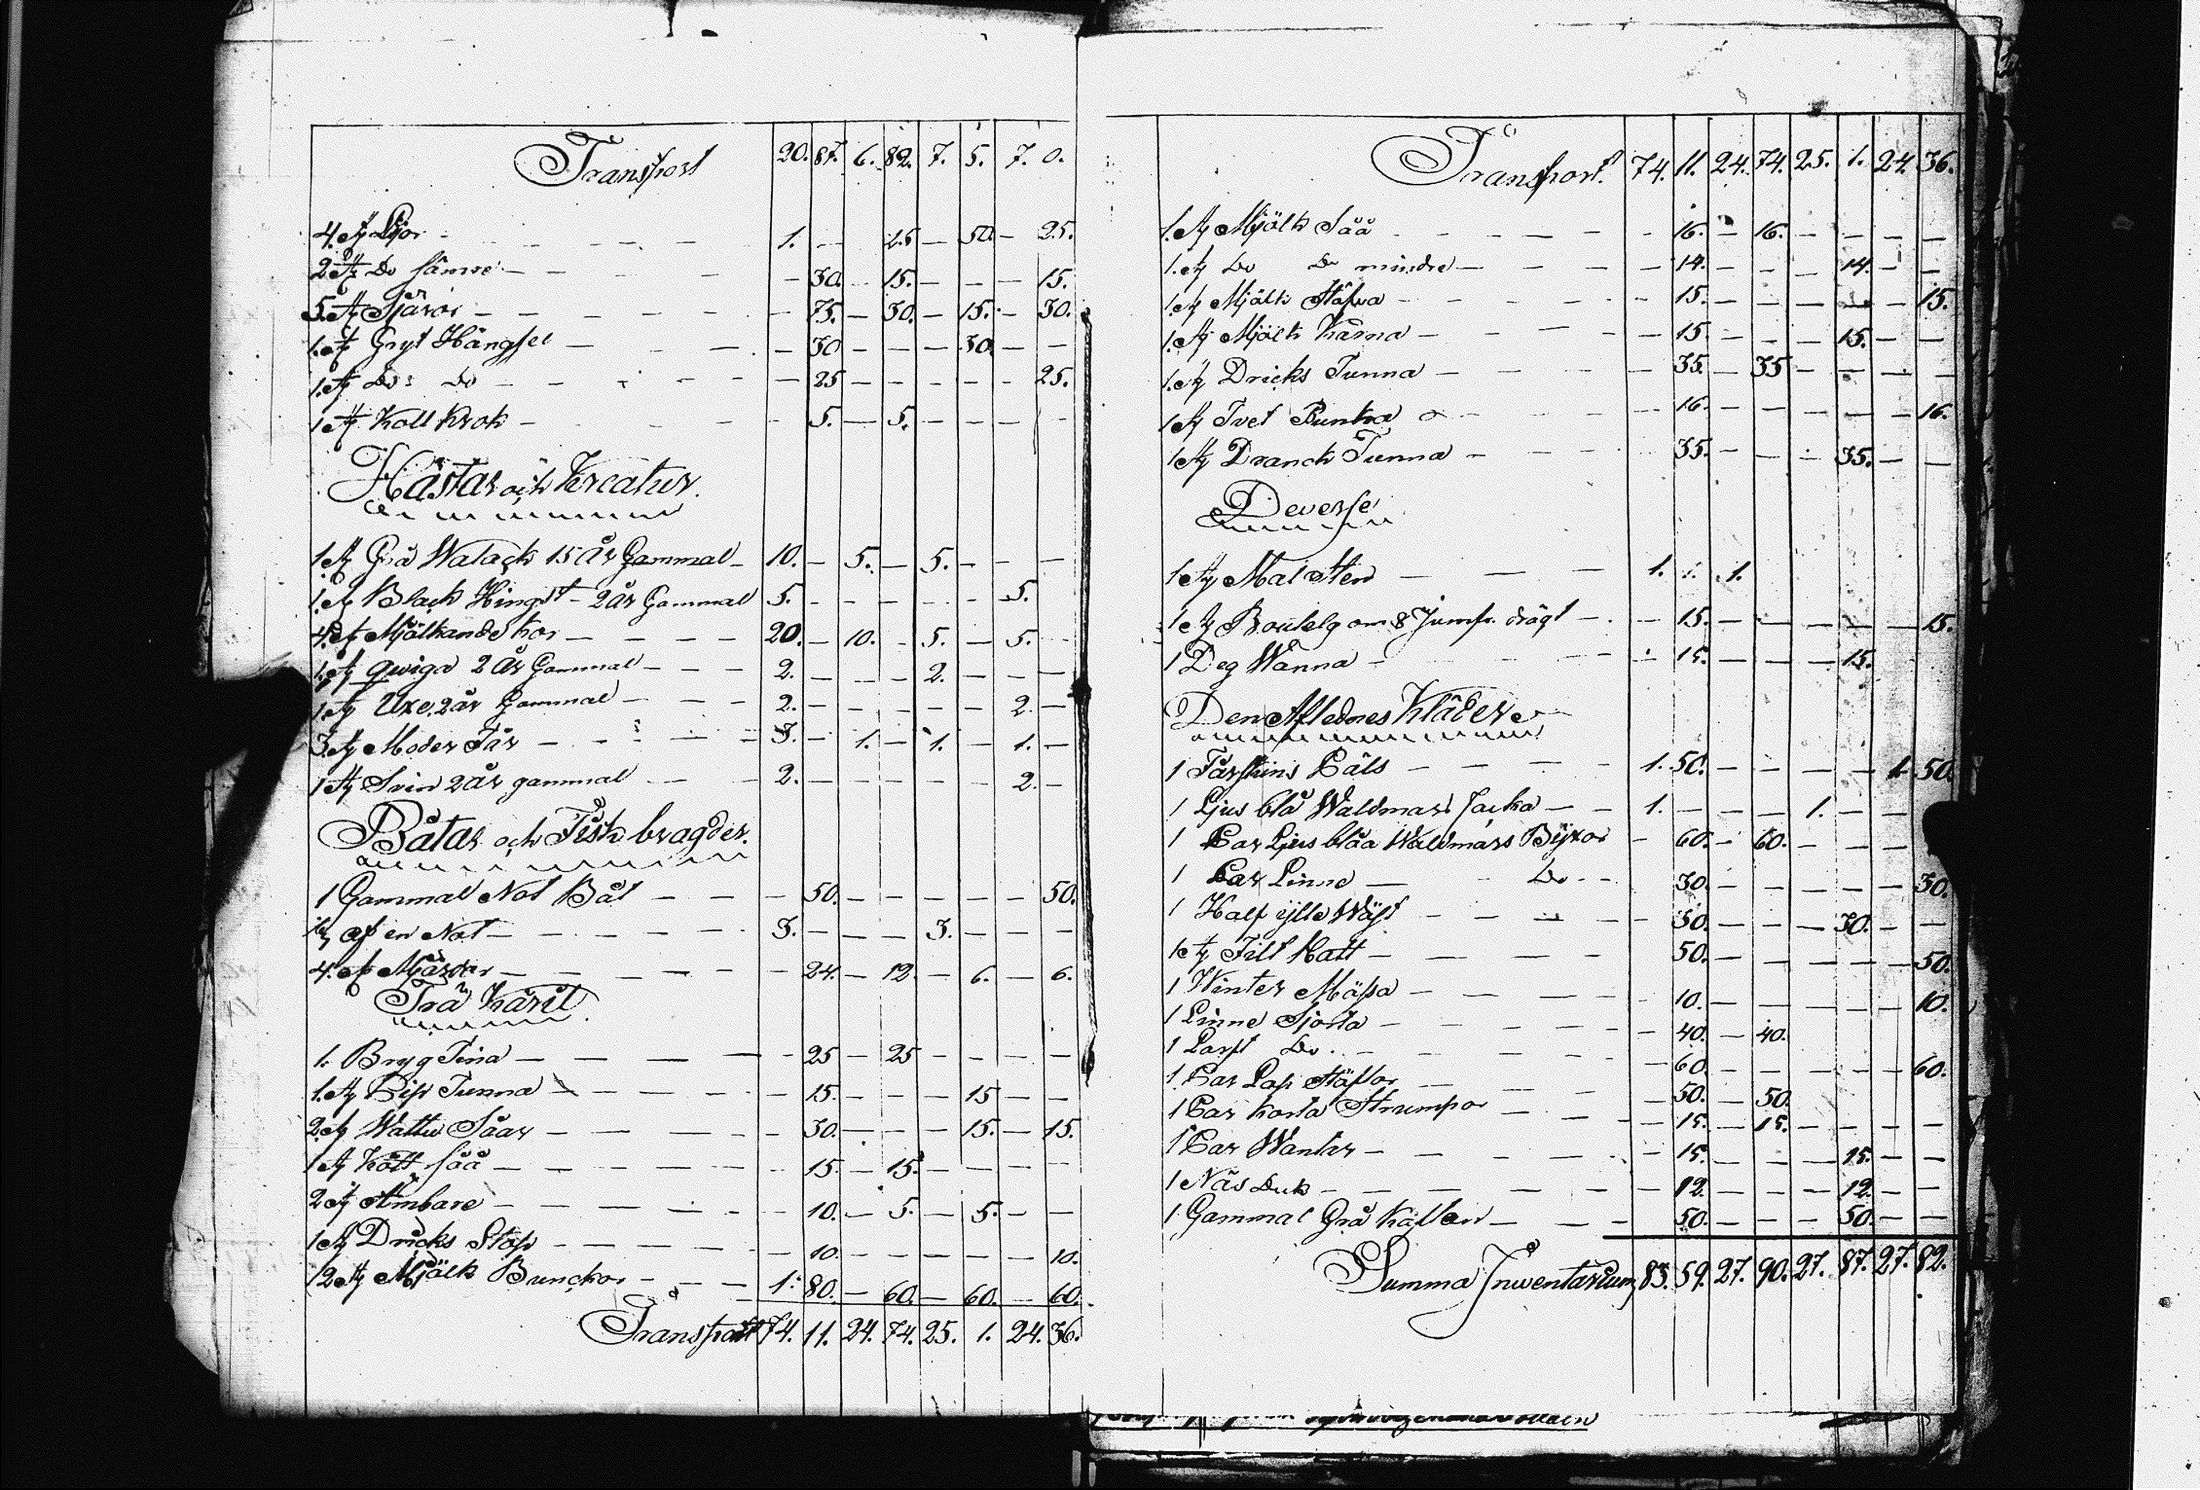 Transport 20. 87. 6. 82. 7. 5. 7. 0.
4. st Ljor - - - - - 1. - - 25 - 50. - 25.
2 st Do sämre - - - - 30. - 15. - - - 15.
5. st Skäror - - - - - 75. - 30. - 15. - 30.
1. st Gryt Hängsel - - - - 30 - - - 30 - -
1. st Do: Do - - - - - 25 - - - - - 25.
1 st Koll Krok - - - - 5. - 5. - - - -
Hästar och Kreatur.
1. st Grå Walack 15 År Gammal - 10. - 5. - 5. - - -
1. st Black Hingst - 2 år Gammal 5. - - - - - 5.
4. st Mjölkande Kor - - - - 20. - 10. - 5. - 5. -
1. st Qwiga 2 År Gammal - - - 2. - - - 2. - - -
1. st Uxe, 2 år Gammal - - - 2. - - - - - 2. -
3. st Moder Får - - - - 3. - 1. - 1. - 1. -
1 st Svin 2 år gammal - - - 2. - - - - - 2. -
Båtar och Fisk bragder.
1 Gammal Not Båt - - - - 50. - - - - - 50.
af en Not - - - - - 3. - - - 3. - - -
4. st Mjärdar - - - - - 24. - 12. - 6. - 6.
Trä Käril
1. Bryg Tina - - - - - 25 - 25 - - - - -
1. st Tunna - - - - 15. - - - 15 - -
2. st Wattu Såar - - - - - 30. - - - 15. - 15.
1 st Kött Såå - - - - - 15. - 15. - - - -
2 st Ämbare - - - - - 10. - 5. - 5. - -
1 st Dricks Stop - - - - 10. - - - - - 10.
12 st Mjölk Bunckor - - - 1. 80. - 60. - 60. - 60.
Transport 74. 11. 24. 74. 25. 1. 24. 36.
Transport. 74. 11. 24. 74. 25. 1. 24. 36.
1. st Mjölk Såå - - - - - 16. - 16. - - - -
1. st Do Do mindre - - - - 14. - - - 14. - -
1. st Mjölk Stäfwa - - - - 15. - - - - - 15.
1. st Mjölk Kärna - - - - 15. - - - 15. - -
1. st Dricks Tunna - - - - 35. - 35 - - - -
1 st Tvet Bunka - - - - 16. - - - - - 16.
1 st Dranck Tunna - - - 35. - - - 35. - -
Deverse
1 st Mal Sten - - - 1. 1. 1.
1 st om 8 Jumfr. drägt - - 15. - - - - - 15.
1 Deg Wanna - - - - 15. - - - 15.
Den Aflednes Kläder
1 Fårskins Päls - - - - 1. 50. - - - - 1. 50.
1 Ljus blå Waldmars Jacka - - 1. - - - 1. - - -
1 Par Ljus blåa Waldmars Byxor - 60. - 60. - - - -
1 Par Linne - - Do - - 30. - - - - - 30.
1 Half ylle Wäst - - - - 30. - - - 30. - -
1 st Filt Hatt - - - - 50. - - - - - 50.
1 Winter Mössa - - - - 10. - - - - - 10.
1 Linne Sjorta - - - - 40. - 40.
1 Do. - - - - 60. - - - - - 60.
1 Par Stöflor - - - 50. - 50.
1 Par korta Strumpor - - - 15. - 15. - - - -
1 Par Wantar - - - - 15. - - - 15. - -
1 Näs Duk - - - - - 12. - - - 12. - -
1 Gammal Grå Kaftan - - - 50. - - - 50. - -
Summa Inwentarium 83. 59. 27. 90. 27. 87. 27. 82.